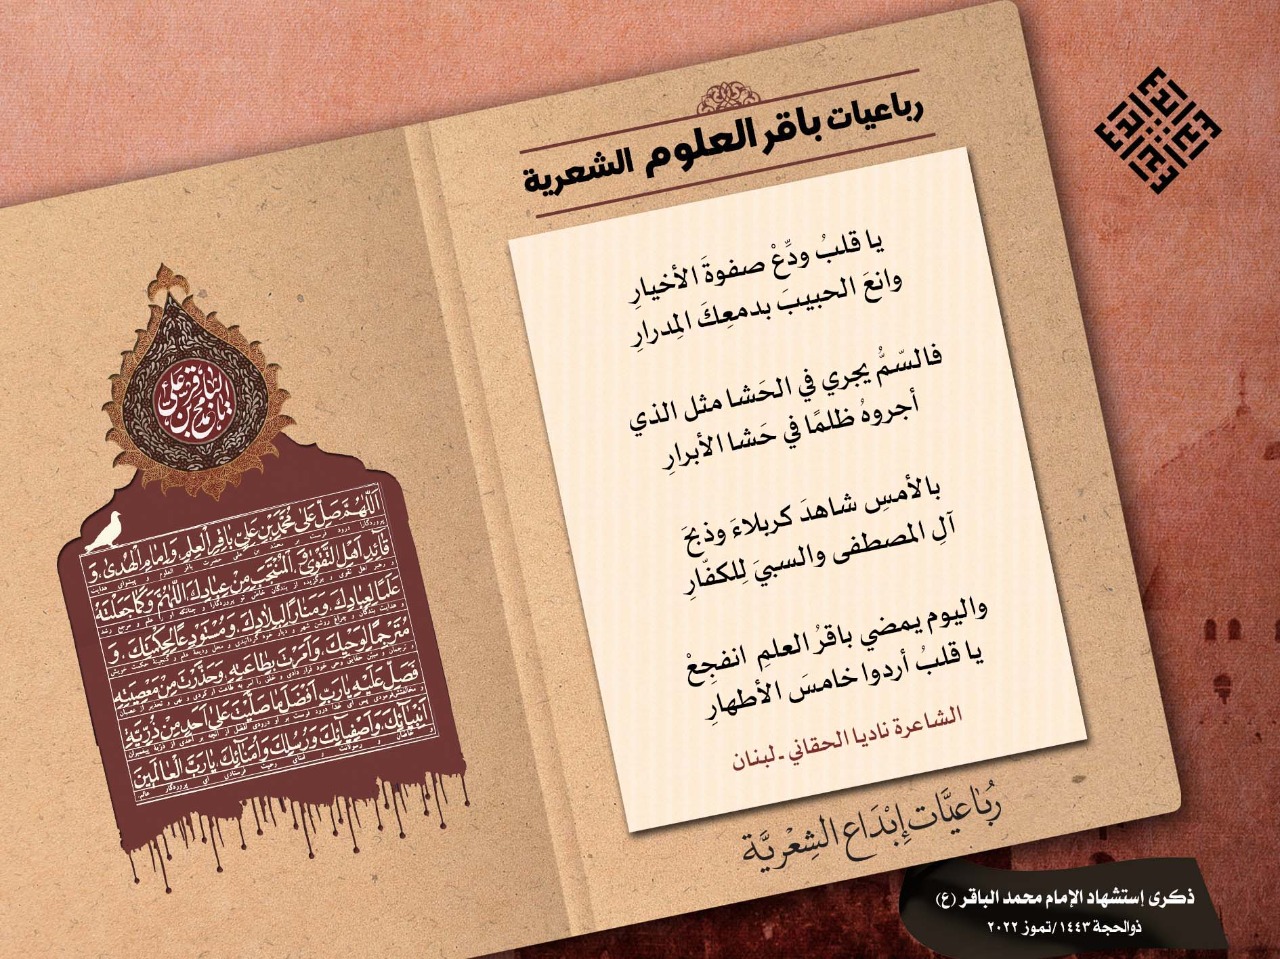 رباعيات باقر العلوم الشعرية
يا قلبُ ودِّعْ صفوةَ الأخيارِ
وانعَ الحبيبَ بدمعِكَ المِدرارِ
فالسّمُّ يجري في الحَشا مثل الذي
أجروهُ ظلمًا في حَشا الأبرارِ
بالأمسِ شاهدَ كربلاءَ وذبحَ
آلِ المصطفى والسبيَ لِلكفّارِ
واليوم يمضي باقرُ العلمِ انفجِعْ
يا قلبُ أردوا خامسَ الأطهارِ
الشاعرة ناديا الحقاني - لبنان
رُبَاعيَّات إِبْدَاع الشِعْريَّة
ذكرى إستشهاد الإمام محمد الباقر (ع)
ذوالحجة ١٤٤٣ /تموز ٢٠٢٢
اَللّهُمَّ صَلِّ عَلى مُحَمَّدِ بْنِ عَلِيٍّ باقِرِ الْعِلْمِ وَاِمامِ الْهُدى، وَ
قائِدِ اَهْلِ التَّقْوى، الْمُنْتَجَبِ مِنْ عِبادِكَ اَللّهُمَّ وَكَما جَعَلْتَهُ
عَلَماً لِعِبادِكَ، وَمَناراً لِبِلادِكَ، وَمُسْتَوْدَعاً لِحِكْمَتِكَ، وَ
مُتَرْجِماً لِوَحْيِكَ وَاَمَرْتَ بِطاعَتِهِ، وَحَذَّرْتَ مِنْ مَعْصِيَتِهِ
فَصَلِّ عَلَيْهِ يا رَبِّ اَفْضَلَ ما صَلَّيْتَ عَلى اَحَدٍ مِنْ ذُرِّيَّةِ
اَنْبِيائِكَ وَاَصْفِيائِكَ وَرُسُلِكَ وَاُمَنائِكَ يا رَبَّ الْعالَمينَ